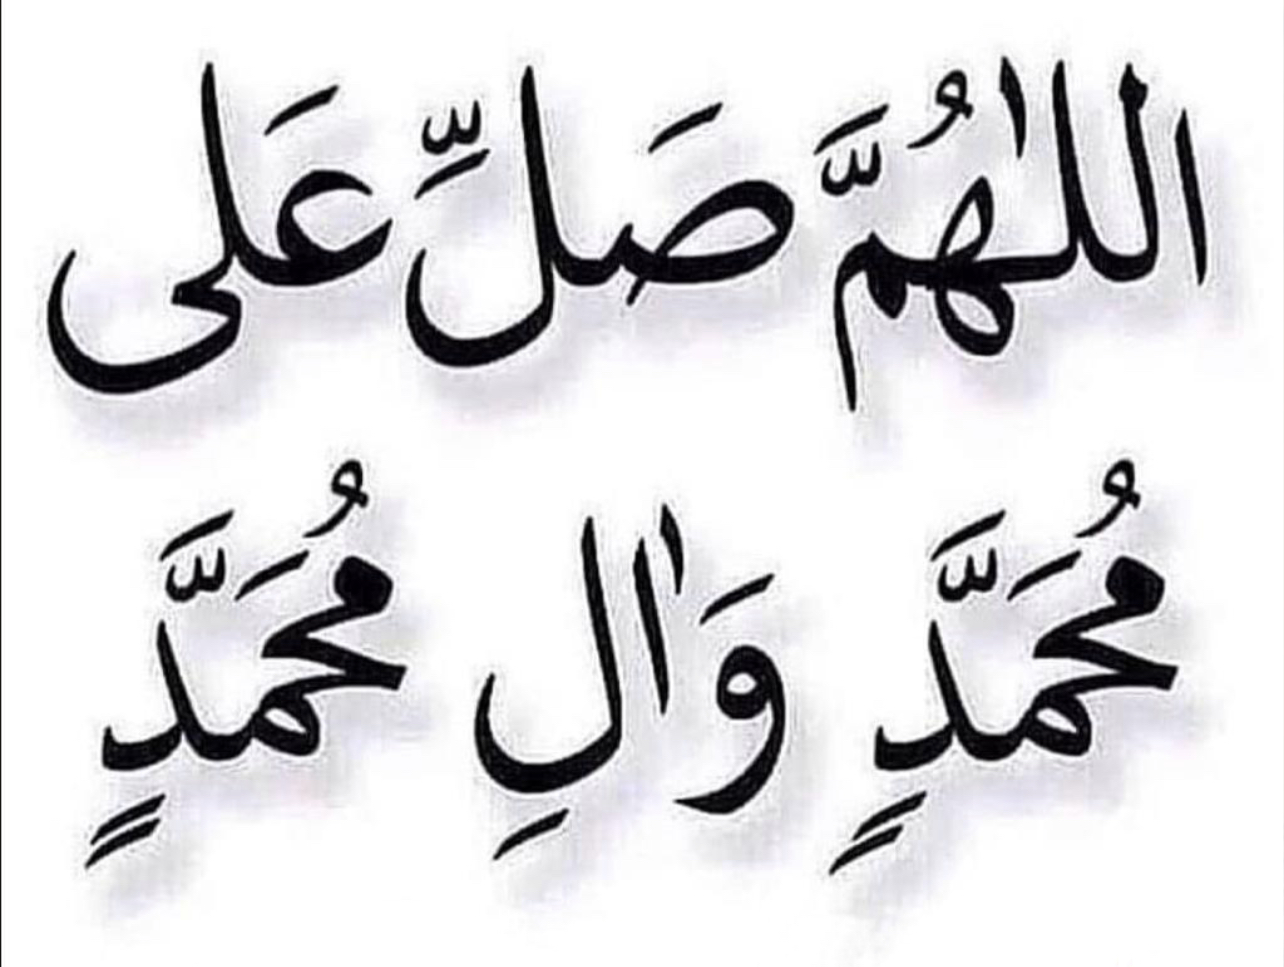 اللٰهُمَّ صَلِّ عَلى
مُحَمَّدٍ وَاٰلِ مُحَمَّدٍ